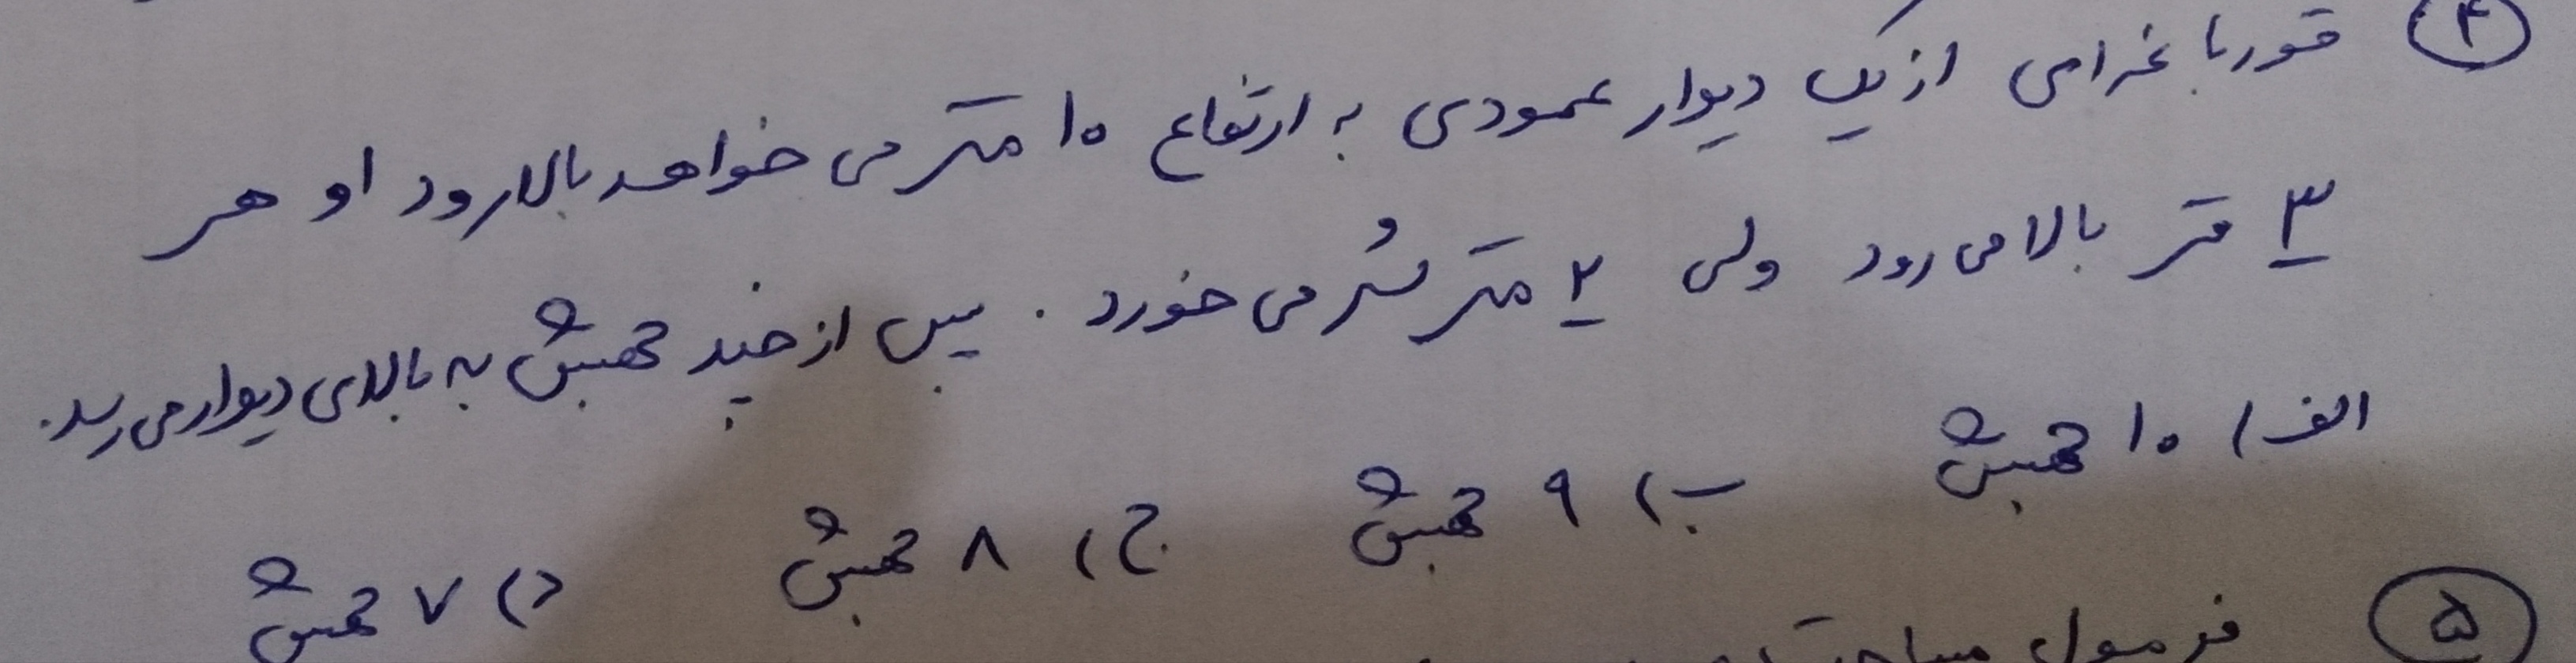 ۴ قورباغه‌ای از یک دیوار عمودی به ارتفاع ۱۰ متر می خواهد بالا رود او هر
۳ متر بالا می رود ولی ۲ متر سُر می خورد . پس از چند جهش به بالای دیوار می رسد.
الف) ۱۰ جهش
ب) ۹ جهش
ج) ۸ جهش
د) ۷ جهش
۵ فرمول مساحت